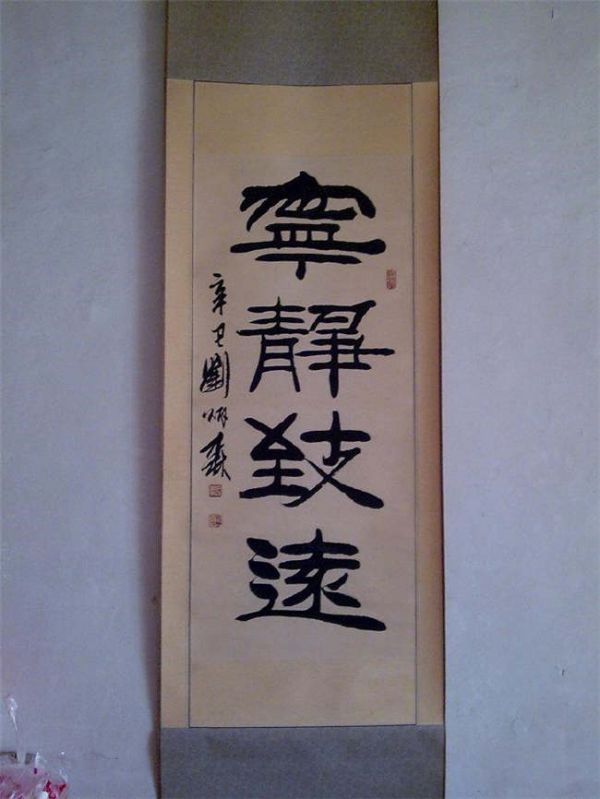 寧靜致遠
辛巳劉炳森